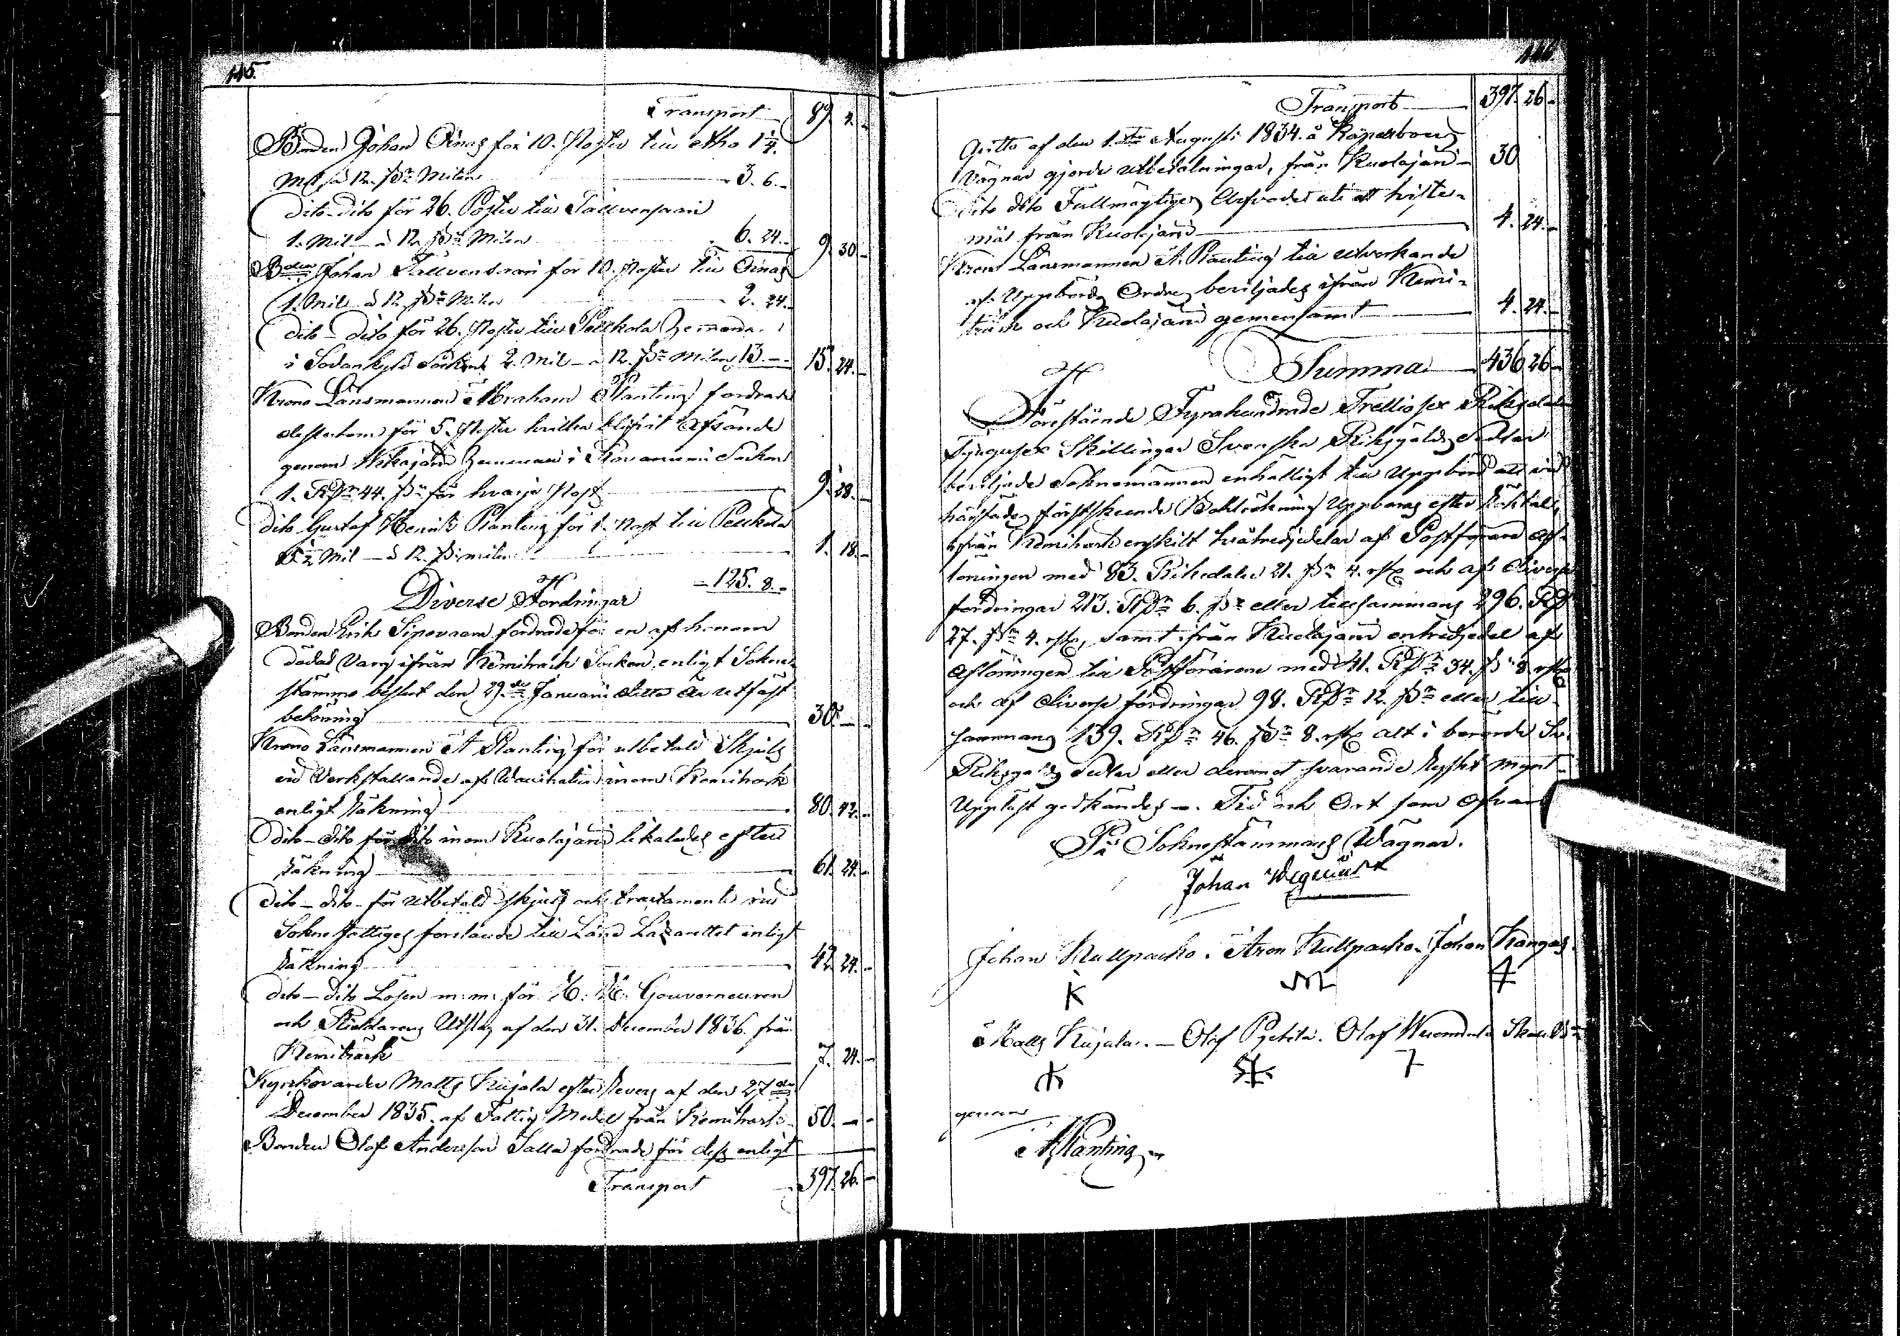 115.
Transport 89. 2. -
Bonden Johan Oinas för 10. Poster till etho 1 1/4
Mil à 12. sk. Milen 3. 6. -
dito dito för 26. Poster till Tallvensaari
1. Mil à 12. sk. Milen 6. 24. - 9. 30. -
Bonden Johan Tallvensaari för 10. Poster till Oinas
1. Mil à 12. sk. Milen 2. 24.
dito dito för 26. Poster till Pelkola Hemman
i Sodankylä Sockn 2. Mil à 12. sk. Milen 13. - 15. 24. -
Krono Länsmannen Abraham Planting fordrade
dessutom för 5. Poster hvilka blifvit afsände
genom Hemman i Rovaniemi Sockn
1. RD 44. sk. för hvarje Post 9. 28. -
dito Gustaf Henrik Planting för 1. Post till Pelkola
Mil à 12. sk. milen 1. 18. -
125. 8. -
Diverse Fordringar
Bonden Erik Sipovaara fordrade för en af honom
dödad Varg ifrån Kemiträsk Sockn enligt Sokne
stämmo beslut den 29de Januari detta År utfäst
belöning 30. - -
Krono Länsmannen A Planting för utbetald Skjuts
vid Verkställande af Vaccination inom Kemiträsk
enligt Räkning 80. 42. -
dito dito för dito inom Kuolajärvi likaledes efter
Räkning 61. 24. -
dito dito för utbetald skjuts och tractamente vid
Sokne fattiges forslande till Länd Lazarettet enligt
Räkning 42. 24. -
dito dito Lösen m: m: för H. H. Gouverneuren
och Riddarens Utslag af den 31. December 1836. från
Kemiträsk 7. 24. -
Kyrkovärden Matts Kujala efter Revers af den 27de
December 1835. af Fattig Medel från Kemiträsk 50. - -
Bonden Olof Andersson Salla fordrade för dess enligt
Transport 397. 26. -
116.
Transport 397. 26 -
qvitto af den 1sta Augusti 1834. å
vägnar gjorde utbetalningar, från Kuolajärvi 30
Dito dito Fullmägtiges Arfvode uti ett twiste-
mål från Kuolajärvi 4. 24. -
Krono Länsmannen A. Planting till utverkande
af Uppbörds Ordres beviljades ifrån Kemi-
träsk och Kuolajärvi gemensamt 4. 24. -
Summa 436 26 -
Förestående Fyrahundrade Trettiosex Riksdaler
Tjugusex Skillingar Svenska Riksgälds Sedlar
beviljade Soknemännen enhälligt till Uppbörd att vid
härstädes förstskeende Uppbäras efter Röktal,
ifrån Kemiträsk enskilt tvåtredjedelar af Postförare af-
löningen med 83. Riksdaler 21. sk. 4. rst. och af diverse
fordringar 213. RD 6. sk. eller tillsammans 296. RD
27. sk. 4. rst., samt från Kuolajärvi entredjedel af
Aflöningen till Postförarene med 41. RD 34. sk. 8. rst.
och af diverse fordringar 98. RD 12. sk. eller till-
sammans 139. RD 46. sk. 8. rst. alt i berörde Sv.
Riksgälds Sedlar eller deremot svarande Ryskt mynt.
Uppläst godkändes -. Tid och Ort som ofvan
På Soknestämmans Vägnar.
Johan Wegelius
Johan Kullpacko. Aron Kullpacko. Johan Kangas.
K M
Matts Kujala. - Olof Pyhta. Olof
genom
A Planting